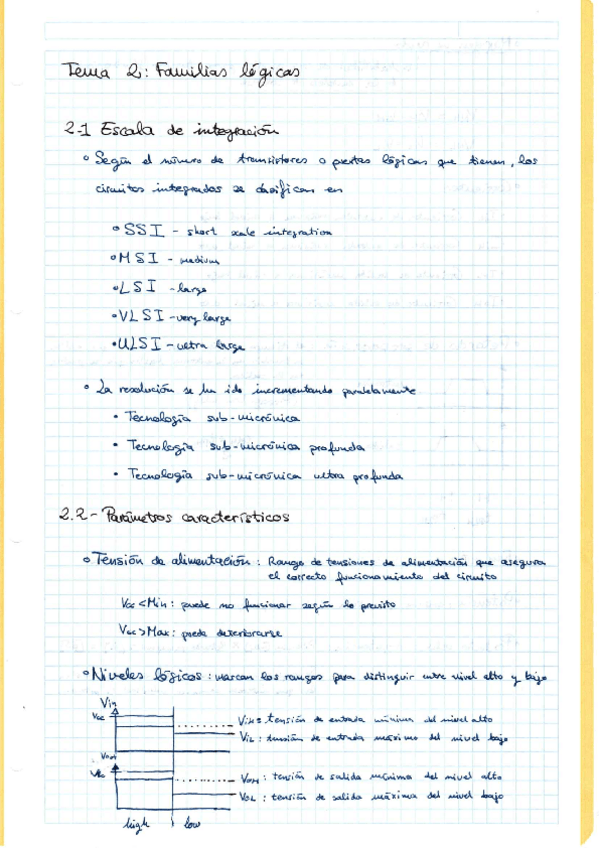 Tema 2: Familias lógicas
2.1 Escala de integración
Según el número de transistores o puertas lógicas que tienen, los
circuitos integrados se clasifican en
SSI - short scale integration
MSI - medium
LSI - large
VLSI - very large
ULSI - ultra large
La resolución se ha ido incrementando paralelamente
Tecnología sub-micrónica
Tecnología sub-micrónica profunda
Tecnología sub-micrónica ultra profunda
2.2- Parámetros característicos
Tensión de alimentación: Rango de tensiones de alimentación que asegura
el correcto funcionamiento del circuito
Vcc < Min: puede no funcionar según lo previsto
Vcc > Max: puede deteriorarse
Niveles lógicos: marcan los rangos para distinguir entre nivel alto y bajo
Vin
Vcc
VIH: tensión de entrada mínima del nivel alto
VIL: tensión de entrada máxima del nivel bajo
Vcc
VOH: tensión de salida mínima del nivel alto
VOL: tensión de salida máxima del nivel bajo
high low